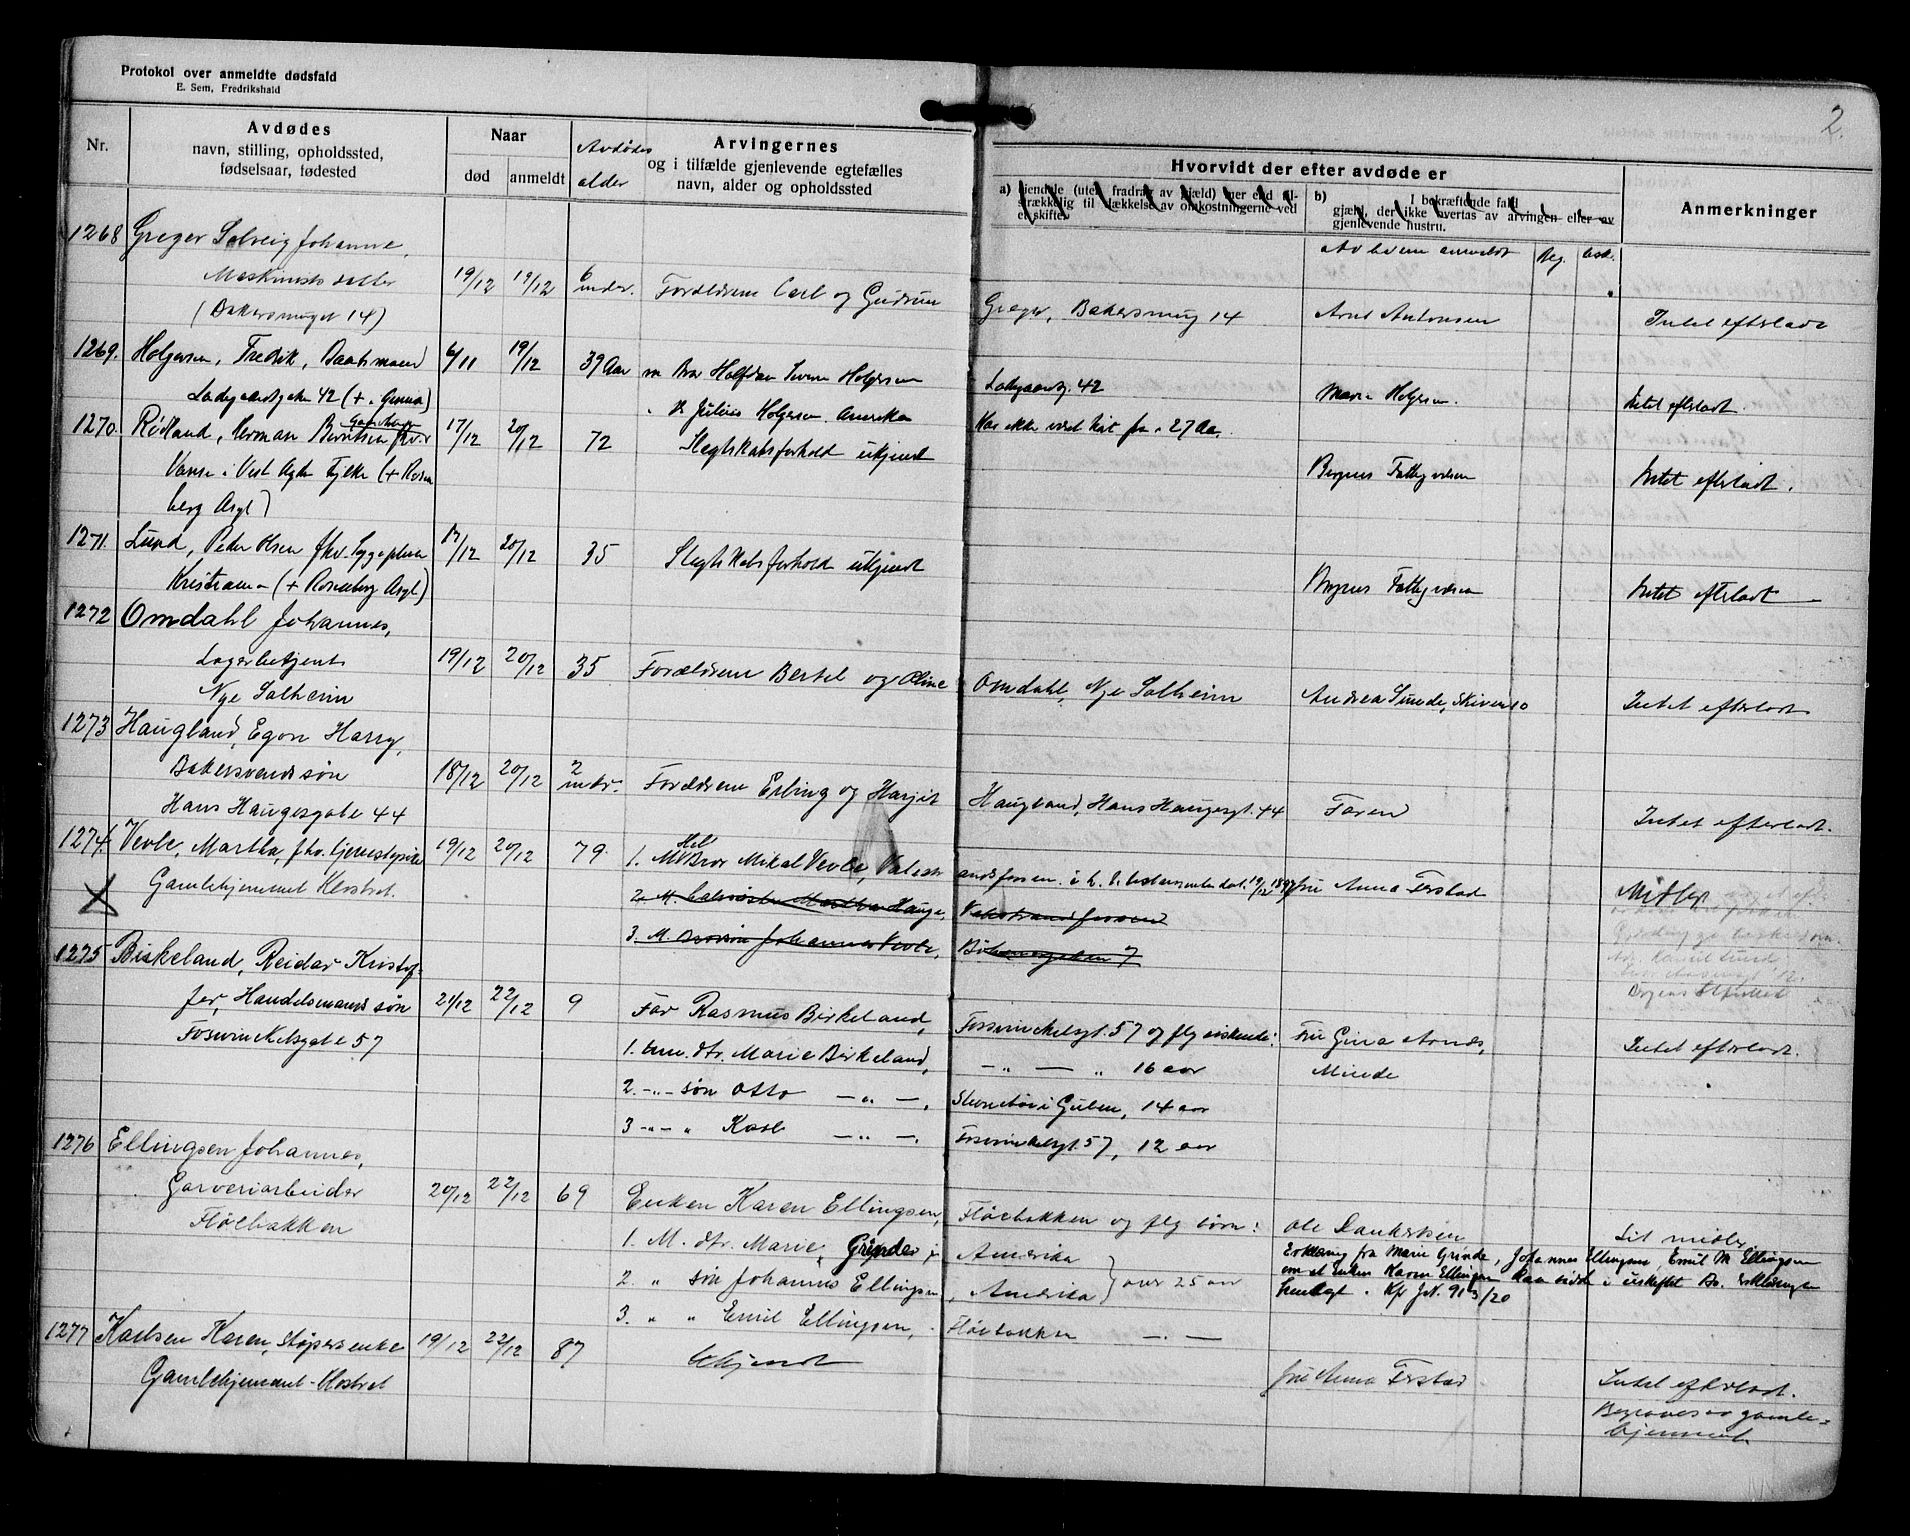 Protokol over anmeldte dødsfald
E. Sem, Fredrikshald
2.
Nr.
Avdødes
navn, stilling, opholdssted,
fødselsaar, fødested
Naar
død anmeldt
Avdødes
alder
Arvingernes
og i tilfælde gjenlevende egtefælles
navn, alder og opholdssted
Hvorvidt der efter avdøde er
a) eiendele (uten fradrag av gjæld) mer end til-
strækkelig til dækkelse av omkostningerne ved
et skifte
b) I bekræftende fald
gjæld, der ikke overtas av arvingen eller av
gjenlevende hustru.
Av hvem anmeldt
Anmerkninger
1268 Greger Solveig Johanne,
Maskinists datter 19/12 19/12 6 mdr. Forældrene Carl og Gudrun Greger, Bakersmug 14 Arne Antonsen Intet efterladt
(Bakersmuget 14)
1269. Holgersen, Fredrik, Baatsmand 6/11 19/12 39 Aar Bror Halfdan Holgersen Ladegaardsg. 42 Marie Holgersen. Intet efterladt.
Ladegaardsgaten 42
Julius Holgersen Amerika Har ikke været hørt fra i 27 Aar.
1270. Rødland, Herman Berntsen 17/12 20/12 72 Slegtskabsforhold ukjendt Bergens Fattigvæsen Intet efterladt.
Vanse i Vest Agder Fylke (+ Rosen
berg Asyl)
1271. Lund, Peder Olsen fhv. Sygepleier 17/12 20/12 35 Slegtskabsforhold ukjendt Bergens Fattigvæsen Intet efterladt
Kristiania (+ Rosenberg Asyl)
1272 Omdahl Johannes,
Lagerbetjent 19/12 20/12 35 Forældrene Bertel og Oline Omdahl, Nye Solheim Andrea Sunde, Skiven 10 Intet efterladt
Nye Solheim
1273 Haugland, Egon Harry,
Bakersvends søn 18/12 20/12 2 mdr. Forældrene Erling og Harjit Haugland, Hans Haugesgt. 44 Faren Intet efterladt.
Hans Haugesgate 44
1274. Vevle, Martha, fhv. tjenestepike 19/12 20/12 79. 1. Hel Bror Mikal Vevle, Valestrandsfossen i h. t. testamente dat. 19/12 1897 Fru Anna Forstad Midler
Gamlehjemmet Klostret.
2. M. Martha Hauge, Valestrandsfossen
3. M. Brorsøn Johannes Vevle,
1275 Birkeland, Reidar Kristof-
fer, Handelsmands søn 21/12 22/12 9 Far Rasmus Birkeland, Fosswinckelsgt. 57 og flg søskende: Fru Gina Arnds, Intet efterladt.
Foswinckelsgate 57
1. um. dtr. Marie Birkeland, — „ — „ 16 aar Minde
2 -„- søn Otto — „ —, i Gulen, 14 aar
3 -„- „ Karl — „ —. Fosswinckelsgt. 57, 12 aar
1276 Ellingsen Johannes,
Garveriarbeider 20/12 22/12 69 Enken Karen Ellingsen, Fløibakken og flg børn: Ole Danielsen Lit midler
Fløibakken
1. M. dtr. Marie Grinde, Amerika
2. „ søn Johannes Ellingsen, Amerika } over 25 aar
3. „ „ Emil Ellingsen, Fløibakken — . —
Erklæring fra Marie Grinde, Johannes Ellingsen, Emil M Ellingsen
om at Enken Karen Ellingsen kan sidde i uskiftet Bo. Erklæringen
fremlagt. Kfr JN. 913/20
1277 Karlsen Karen, støpers enke 19/12 22/12 87 Ukjendt Fru Anna Forstad Intet efterladt.
Gamlehjemmet Klostret
Begraves av gamle-
hjemmet